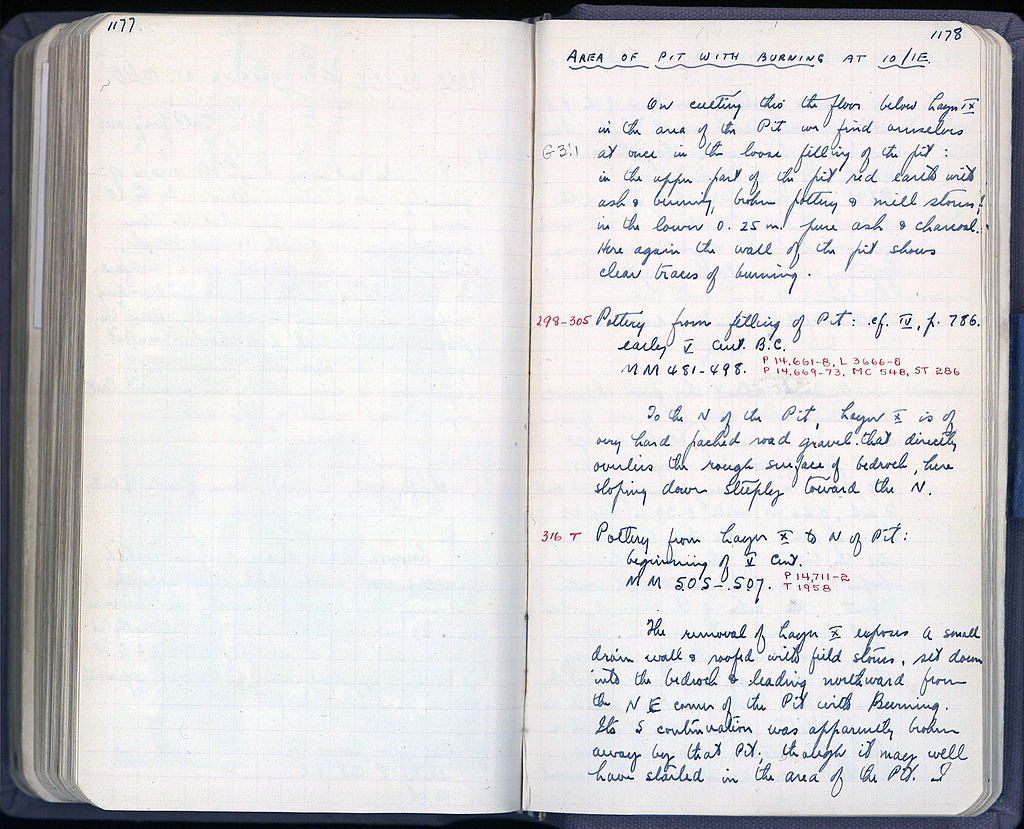 1177
1178
AREA OF PIT WITH BURNING AT 10/1E.
On cutting thro the floor below Layer IX
in the area of the Pit we find ourselves
G 3:1
at once in the loose filling of the pit:
in the upper part of the pit red earth with
ash & burning, broken pottery & mill stones;
in the lower 0.25 m. pure ash & charcoal.
Here again the wall of the pit shows
clear traces of burning.
298-305 Pottery from filling of Pit: cf. IV, p. 786.
early V Cent. B.C.
MM 481-498. P 14,661-8, L 3666-8
P 14,669-73, MC 548, ST 286
To the N of the Pit, Layer X is of
very hard packed road gravel that directly
overlies the rough surface of bedrock, here
sloping down steeply toward the N.
316 T Pottery from Layer X to N of Pit:
beginning of V Cent.
MM 505-507. P 14,711-2
T 1958
The removal of Layer X exposes a small
drain wall & roofed with field stones, set down
into the bedrock & leading northward from
the NE corner of the Pit with Burning.
Its S continuation was apparently broken
away by that Pit, though it may well
have started in the area of the Pit. I